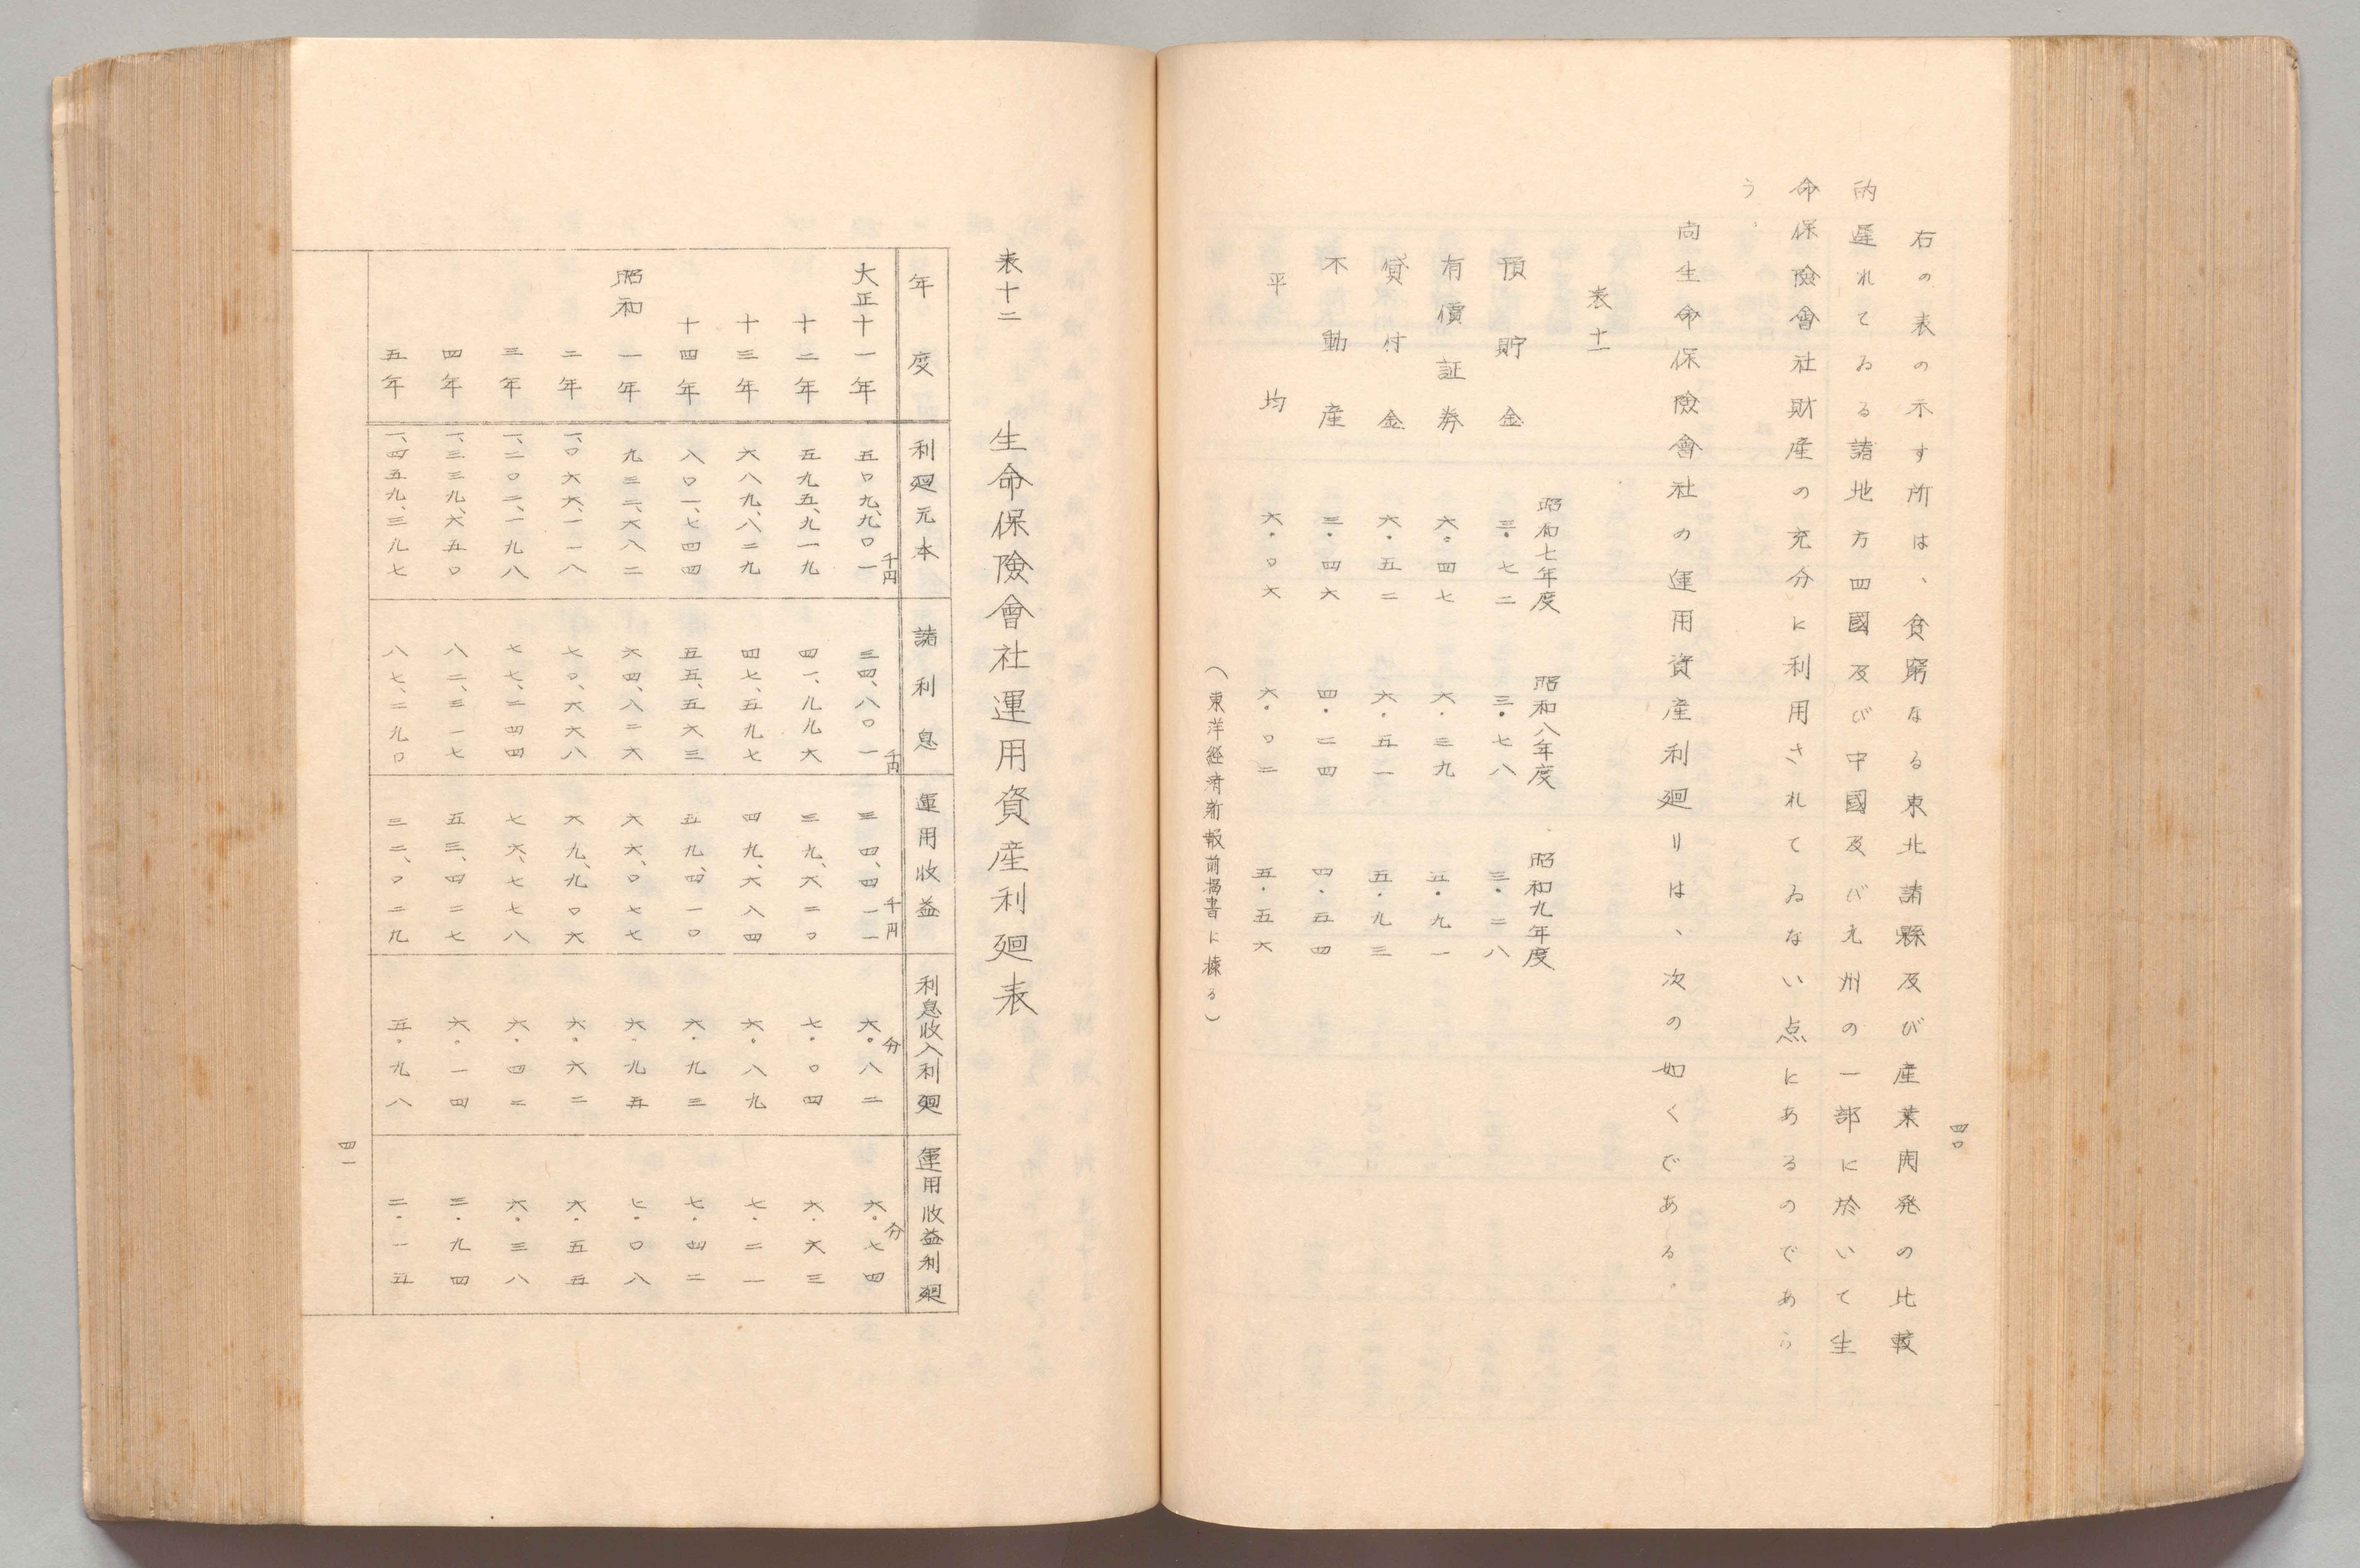 四〇
右の表の示す所は、貧窮なる東北諸縣及び産業開発の比較
的遅れてゐる諸地方四國及び中國及び九州の一部に於いて生
命保険會社財産の充分に利用されてゐない点にあるのであら
う。
尚生命保険會社の運用資産利廻りは、次の如くである。
表十一
昭和七年度 昭和八年度 昭和九年度
預貯金 三・七二 三・七八 三・二八
有價証券 六・四七 六・三九 五・九一
貸付金 六・五二 六・五一 五・九三
不動産 三・四六 四・二四 四・五四
平均 六・〇六 六・〇二 五・五六
(東洋経済新報前掲書に據る)
表十二 生命保険會社運用資産利廻表
年度 利廻元本 諸利息 運用收益 利息收入利廻 運用收益利廻
千円 千円 千円 分 分
大正十一年 五〇九、九〇一 三四、八〇一 三四、四一一 六・八二 六・七四
十二年 五九五、九一九 四一、九九六 三九、六二〇 七・〇四 六・六三
十三年 六八九、八二九 四七、五九七 四九、六八四 六・八九 七・二一
十四年 八〇一、七四四 五五、五六三 五九、四一〇 六・九三 七・四二
昭和一年 九三二、六八二 六四、八二六 六六、〇七七 六・九五 七・〇八
二年 一、〇六六、一一八 七〇、六六八 六九、九〇六 六・六二 六・五五
三年 一、二〇二、一九八 七七、二四四 七六、七七八 六・四二 六・三八
四年 一、三三九、六五〇 八二、三一七 五三、四二七 六・一四 三・九四
五年 一、四五九、三九七 八七、二九〇 三二、〇二九 五・九八 二・一五
四一